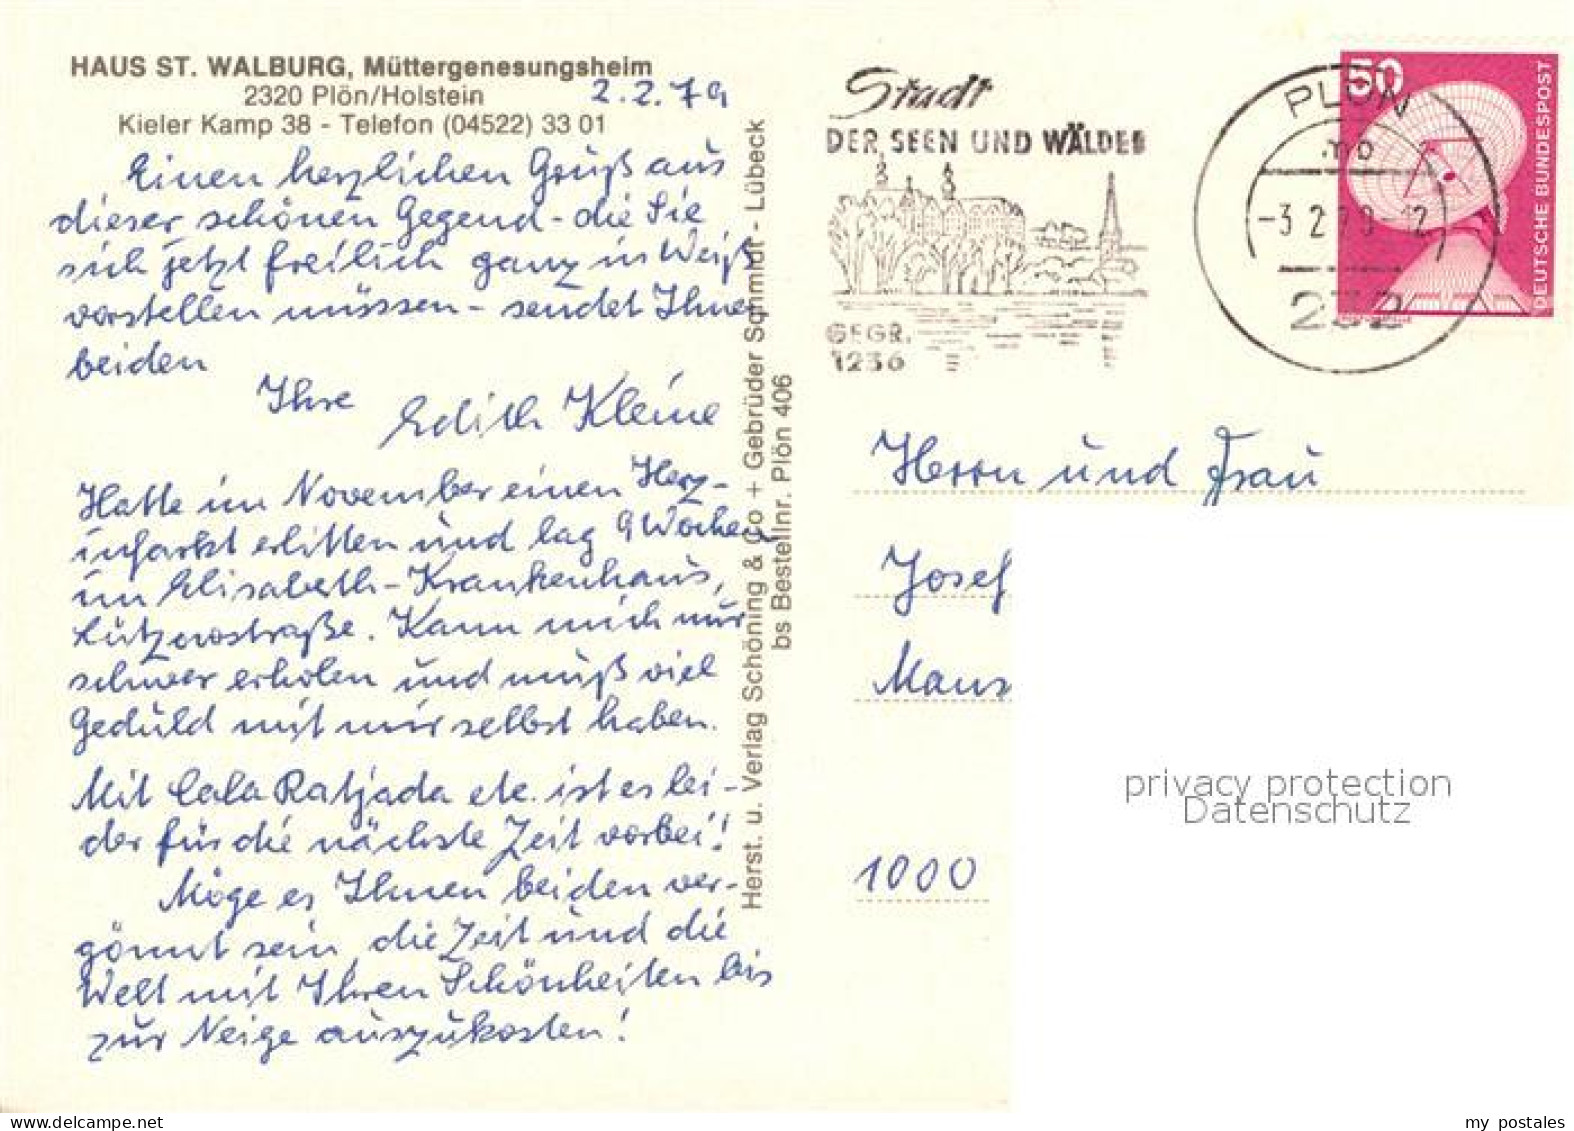 HAUS ST. WALBURG, Müttergenesungsheim
2320 Plön/Holstein
2.2.79
Kieler Kamp 38 - Telefon (04522) 33 01
Einen herzlichen Gruß aus
dieser schönen Gegend - die Sie
sich jetzt freilich ganz in Weiß
vorstellen müssen - sendet Ihnen
beiden
Ihre Edith Kleine
Hatte im November einen Herz-
infarkt erlitten und lag 9 Wochen
im Elisabeth-Krankenhaus,
Lützowstraße. Kann mich nur
schwer erholen und muß viel
Geduld mit mir selbst haben.
Mit Cala Ratjada etc. ist es lei-
der für die nächste Zeit vorbei!
Möge es Ihnen beiden ver-
gönnt sein, die Zeit und die
Welt mit Ihren Schönheiten bis
zur Neige auszukosten!
Herst. u. Verlag Schöning & Co + Gebrüder Schmidt - Lübeck
bs Bestellnr. Plön 406
Stadt
DER SEEN UND WÄLDER
GEGR.
1236
PLÖN
mo
-3.2.79-12
232
50
DEUTSCHE BUNDESPOST
Herrn und Frau
Josef
1000
privacy protection
Datenschutz
my postales